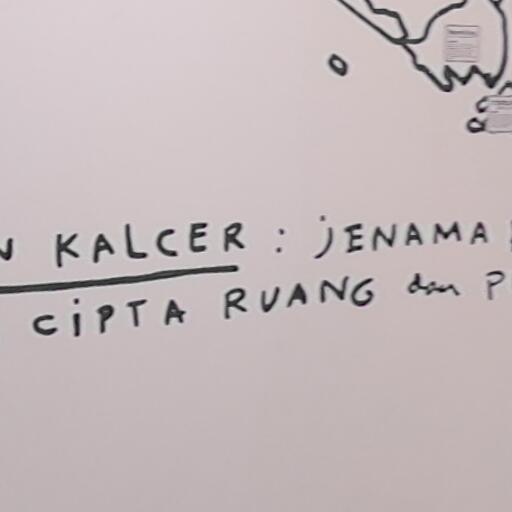 N KALCER : JENAMA
CIPTA RUANG dan P